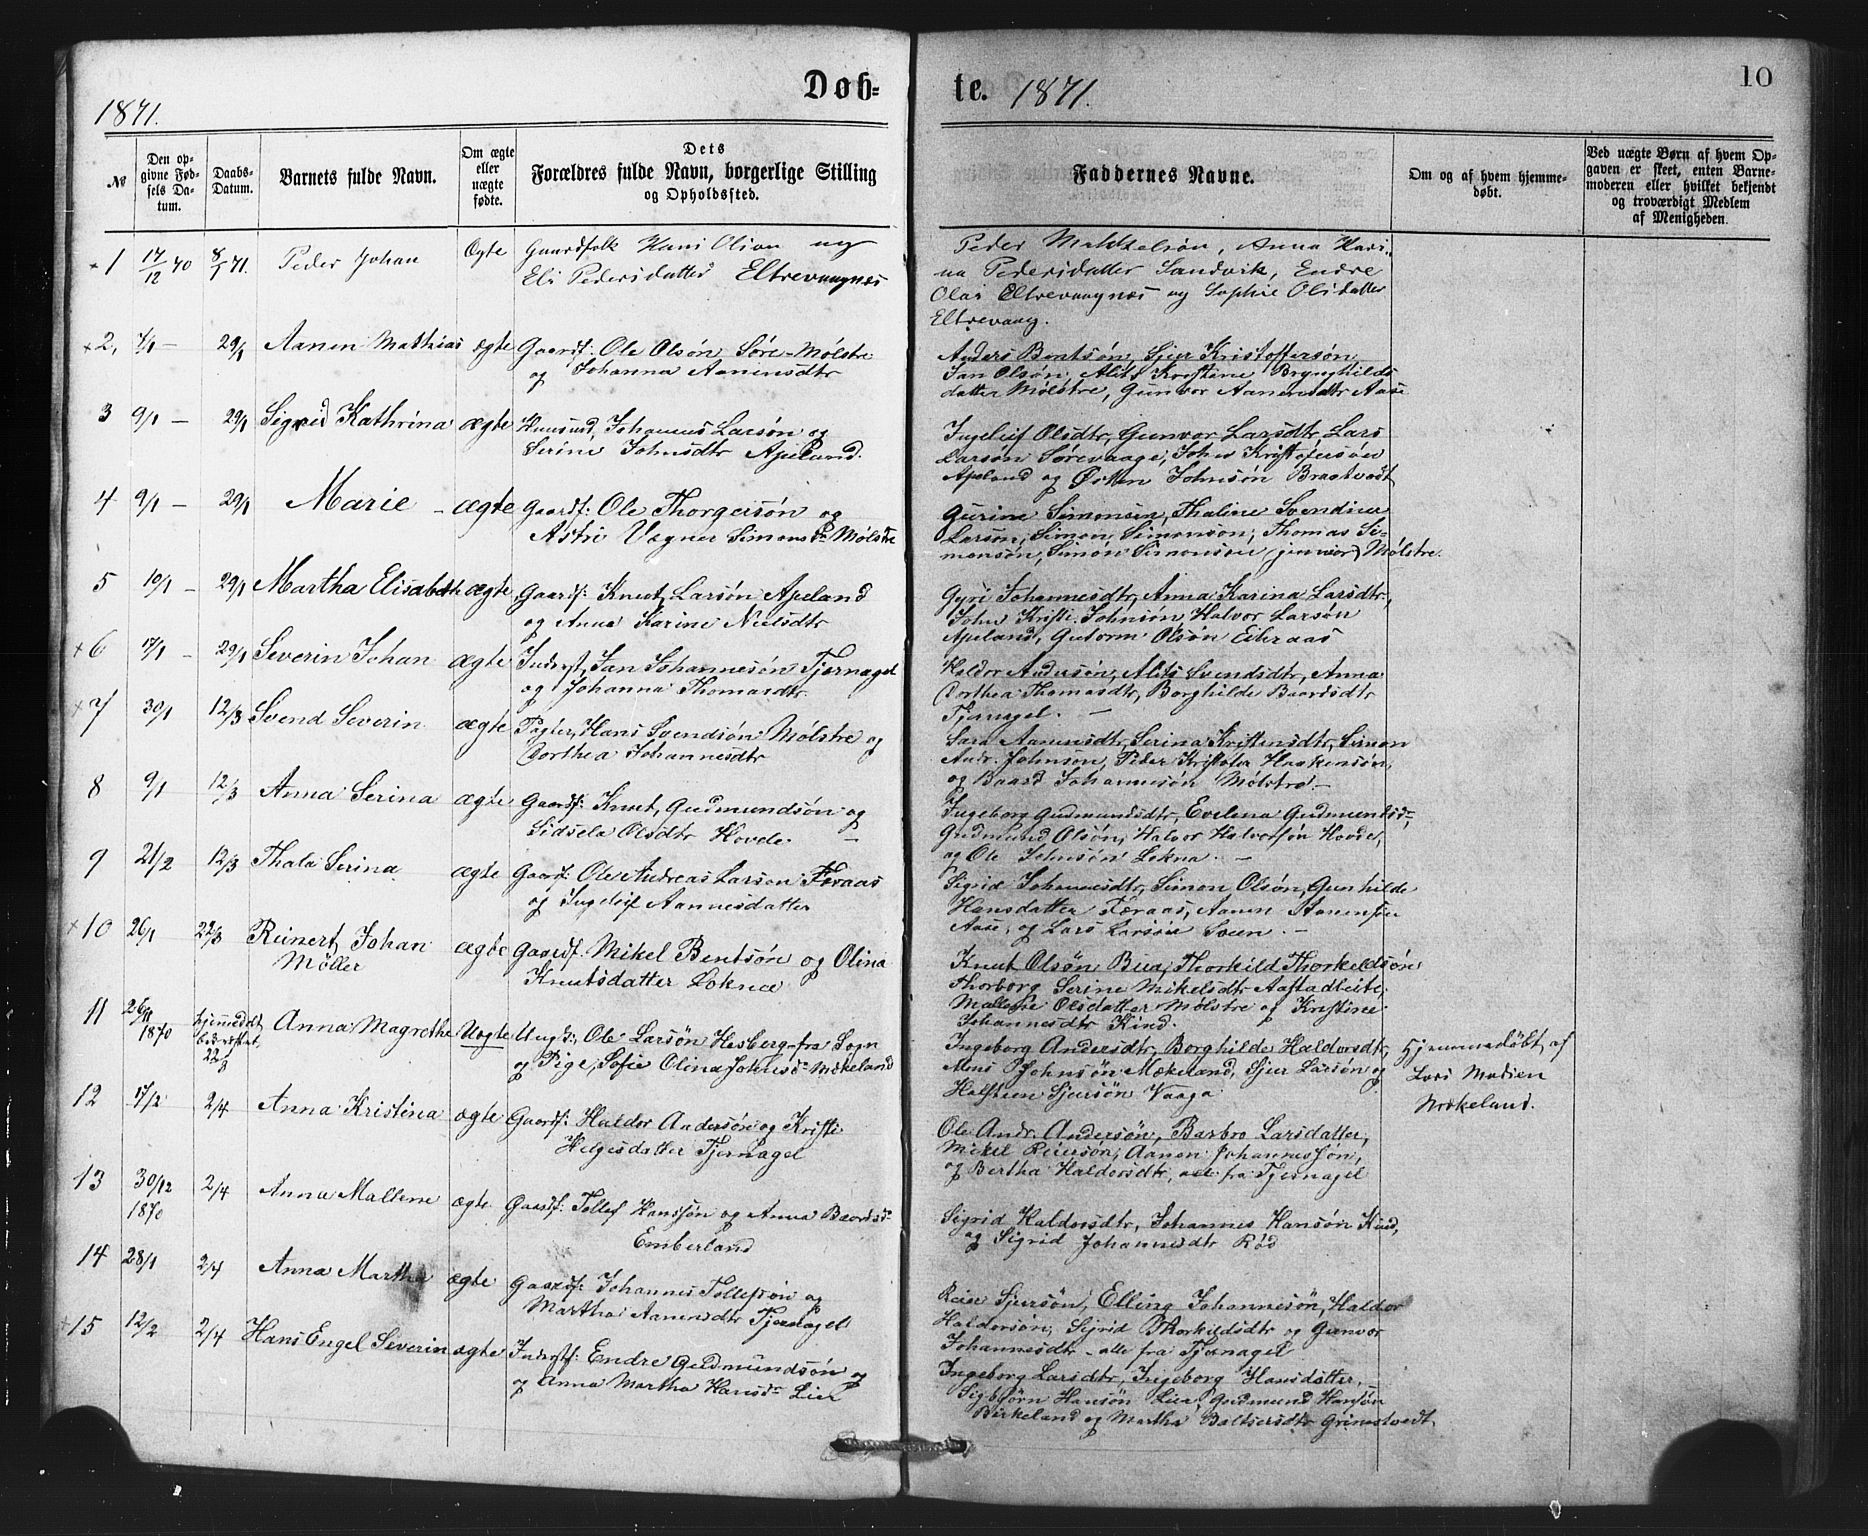 Døb-
te.
1871.
1871.
10
№
Den op-
givne Fød-
sels Da-
tum.
Daabs-
Datum.
Barnets fulde Navn.
Om ægte
eller
uægte
fødte.
Dets
Forældres fulde Navn, borgerlige Stilling
og Opholdssted.
Faddernes Navne.
Om og af hvem hjemme-
døbt.
Ved uægte Børn af hvem Op-
gaven er skeet, enten Barne-
moderen eller hvilket bekjendt
og troværdigt Medlem
af Menigheden.
×1 17/12 70 8/1 71. Peder Johan Ægte Gaardfolk Hans Olson og
Eli Pedersdatter Eltrevaagnæs
Peder Mikkelsøn, Anna
na Pedersdatter Sandvik, Endre
Olai Eltrevaagnæs og Sophie Olsdatter
Eltrevaag.
×2, 7/1 — 29/1 Aanen Mathias ægte Gaardf: Ole Olsøn Søre-Mølstre
og Johanna Aanensdtr
Anders Bentsøn, Sjur Kristoffersøn,
Jan Olsøn, Alits Kristine Brynhilds
datter Mølstre, Gunvor Aanensdtr Aase
3 9/1 — 29/1 Sigrid Kathrina ægte Huusmd, Johannes Larsøn og
Serine Johnsdtr Apeland.
Ingeleif Olsdtr, Gunvor Larsdtr, Lars
Larsøn Sørevaage, John Kristofersøn
Apeland og Østen Johnsøn Braatvedt
4 9/1 — 29/1 Marie — ægte Gaardf: Ole Thorgersøn og
Astri Vægner Simonsdr Mølstre
Gurine Simonsen, Thaline Svendine
Larsøn, Simon Simonsøn, Thomas Si-
monsøn, Simon Simonsøn (junior) Mølstre.
5 10/1 — 29/1 Martha Elisabeth ægte Gaardf: Knut Larsøn Apeland
og Anna Karine Nielsdtr
Gyri Johannesdtr, Anna Karina Larsdtr,
John Kristi. Johnsøn, Halvor Larsøn
Apeland, Gutorm Olsøn Eikraas
×6 17/1 — 29/1 Severin Johan ægte Inderst, Jan Johannesøn Tjernagel
og Johanna Thomasdtr
Haldor Andersøn, Alits Svendsdtr, Anna
Dorthea Thomasdtr, Borghilde Baardsdtr
Tjernagel. —
×7 30/1 12/3 Svend Severin ægte Pagter, Hans Svendsøn Mølstre og
Dorthea Johannesdtr
Sara Aanensdtr, Serina Kristensdtr, Simon
Andr. Johnson, Peder Kristofer Haakensøn,
og Baard Johannesøn Mølstre. —
8 9/1 12/3 Anna Serina ægte Gaardf: Knut, Gudmundsøn og
Sidsela Olsdtr Hovde. —
Ingeborg Gudmundsdtr, Evelena Gudmundsd-,
Gudmund Olsøn, Halvor Halversøn Hovde,
og Ole Johnsøn Lokna. —
9 21/2 12/3 Thala Serina ægte Gaardf: Ole Andreas Larsen Færaas
og Ingeleif Aannesdatter
Sigrid Johannesdtr, Simon Olsøn, Gunhilde
Hansdatter Færaas, Aanen Aanensøn
Aase, og Lars Larsøn Sveen. —
×10 26/1 22/3 Reinert Johan
Møller ægte Gaardf. Mikel Bentsøn og Olina
Knutsdatter Lokna
Knut Olsøn Bua, Thorkild Thorkeldsøn
Thorborg Serine Mikelsdtr Aastadleite,
Mallene Olsdatter Mølstre og Kristine
Johannesdtr Kind.
11 26/11 1870 hjemmedøbt
22/3 Anna Magrethe Uægte Ungd:, Ole Larsøn Hesberg fra Sogn
og Pige, Sofie Olina Johnsdr Mækeland
Ingeborg Andersdtr, Borghilde Haldorsdtr,
Mons Johnsøn Mækeland, Sjur Larsøn og
Halsteen Sjursøn Vaaga.
Hjemmedøbt af
Lars Madsen
Mækeland.
12 17/2 2/4 Anna Kristina ægte Gaardf: Haldor Andersøn og Kristi
Helgesdatter Tjernagel
Ole Andr. Andersøn, Barbro Larsdatter,
Mikel Reiersøn, Aanen Johannessøn,
og Bertha Haldorsdtr, alle fra Tjernagel
13 30/12 1870 2/4 Anna Maltene ægte. Gaardf: Tollef Hanssøn og Anna Baardsd-
Emberland
Sigrid Haldorsdtr, Johannes Hansøn Kind,
og Sigrid Johannesdtr Rød
14 28/1 2/4 Anna Martha ægte Gaardf: Johannes Tollefsøn og
Martha Aanensdtr Tjernagel
Reier Sjursøn, Elling Johannesøn, Haldor
Haldorsøn, Sigrid Thorkildsdtr og Gunvor
Johannesdtr — alle fra Tjernagel
×15 12/2 2/4 Hans Engel Severin ægte Inderstf: Endre Gudmundsøn og
og Anna Martha Hansd- Lier
Ingeborg Larsdtr, Ingeborg Hansdatter, —
Sigbjørn Hansøn Lier, Gudmund Hansøn
Birkeland og Martha Baltsersdtr Grindstvedt